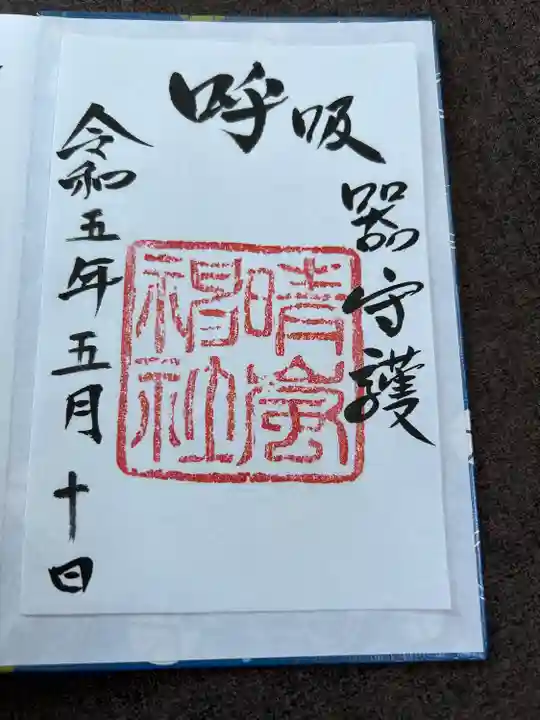 呼吸
器守護
晴
神社
令和五年五月十日